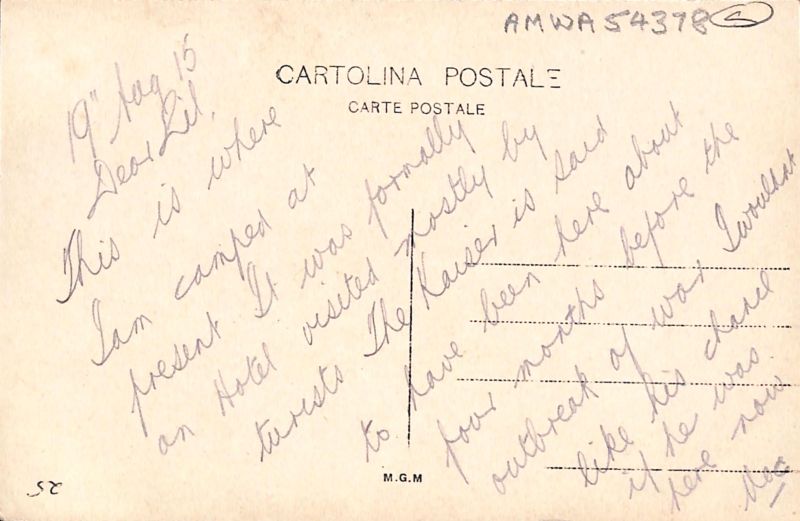 AMWA54378 S
CARTOLINA POSTALE
CARTE POSTALE
19" Aug 15
Dear Lil,
This is where
I am camped at
present It was formally
an Hotel visited mostly by
turists The Kaiser is said
to have been here about
four months before the
outbreak of war I wouldnt
like his chance
if he was
here now
Mac
M.G.M
52